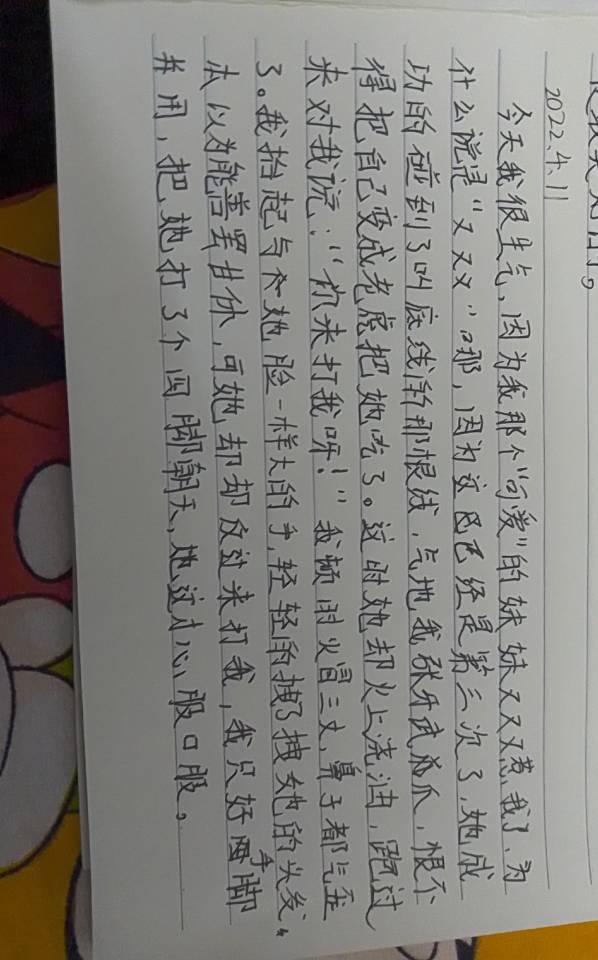 2022.4.11
今天我很生气,因为我那个“可爱”的妹妹又又又惹我了,为
什么说是“又又又”呢,因为这已已经是第三次了,她成
功的碰到了叫底线的那根线,气地我张牙武爪爪,恨不
得把自己变成老虎把她吃了。这时她却火上浇油,跑过
来对我说:“你来打我呀!”我顿时火冒三丈,鼻子都气歪
了。我抬起与她脸一样大的手,轻轻的拽了拽她的头发。
本以为能善罢甘休,可她却却反过来打我,我只好手脚
并用,把她打了个四脚朝天,她这才心服口服。